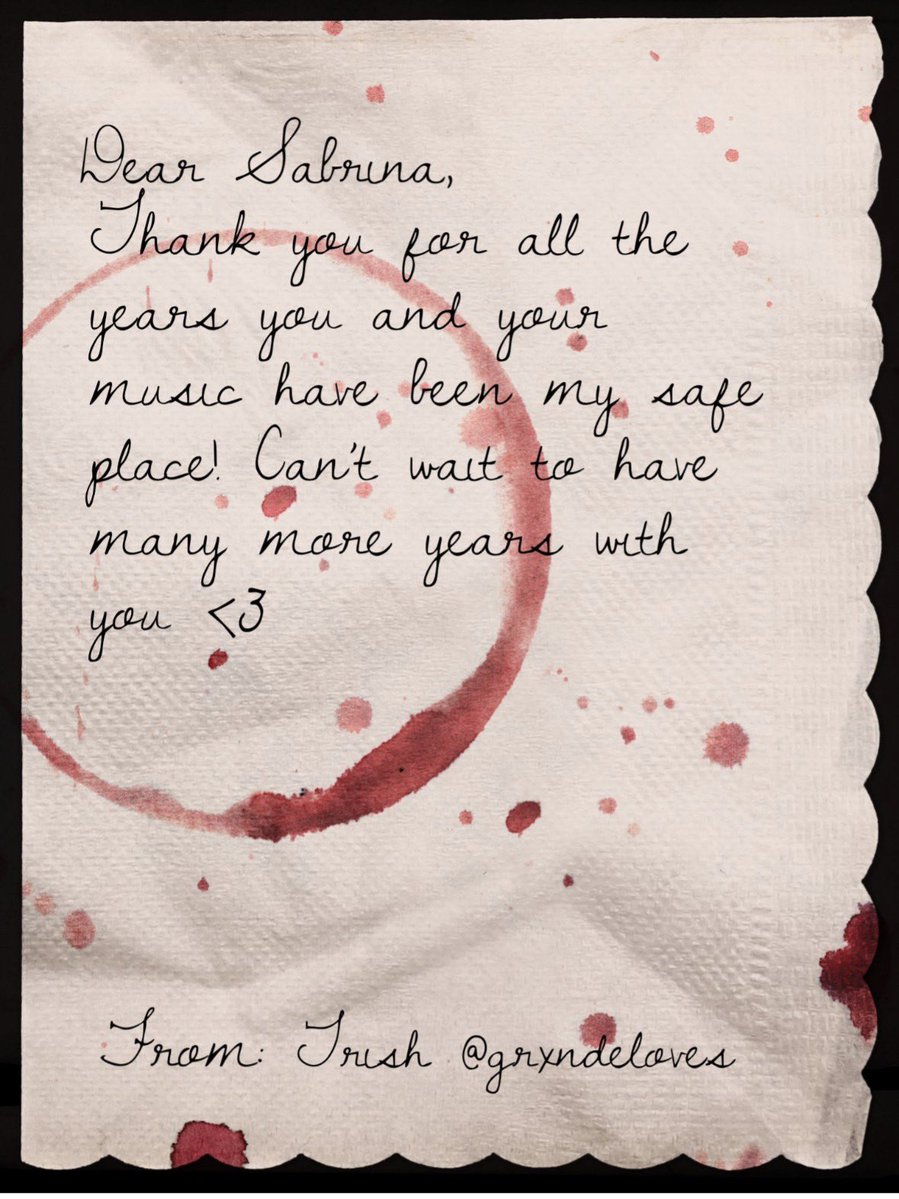 Dear Sabrina,
Thank you for all the
years you and your
music have been my safe
place! Can't wait to have
many more years with
you <3
From: Trish @grxndeloves